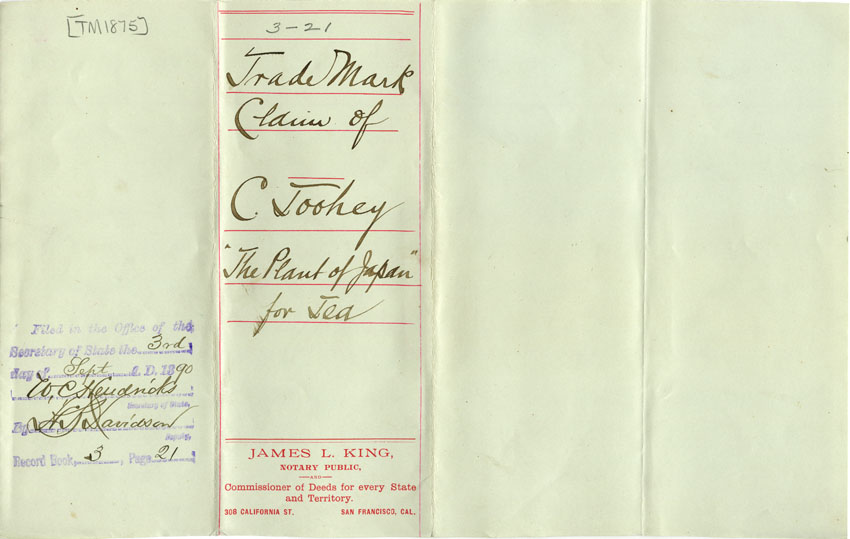 [TM1875]
3-21
Trade Mark
Claim of
C. Toohey
"The Plant of Japan"
for Tea
Filed in the Office of the
Secretary of State the 3rd
day of Sept A. D. 1890
W. C. Hendricks
Secretary of State.
By Davidson
Deputy.
Record Book, 3, Page 21
JAMES L. KING,
NOTARY PUBLIC,
—AND—
Commissioner of Deeds for every State
and Territory.
308 CALIFORNIA ST. SAN FRANCISCO, CAL.